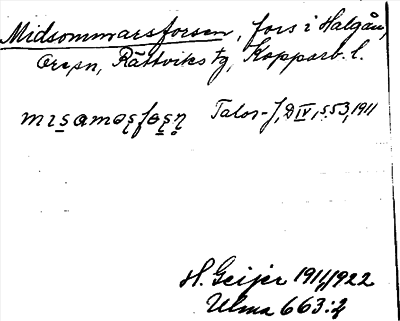 Midsommarsforsen, fors i Halgån,
Ore sn, Rättviks tg, Kopparb. l.
Talor-J, D IV, s. 53, 1911
H. Geijer 1911, 1922
Ulma 663:2